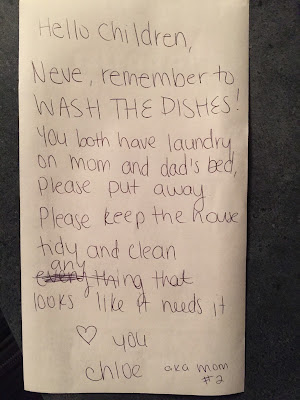 Hello Children,
Neve, remember to
WASH THE DISHES!
You both have laundry
on mom and dad's bed,
please put away
Please keep the house
tidy and clean
any
thing that
looks like it needs it
♡ you
chloe aka mom
#2